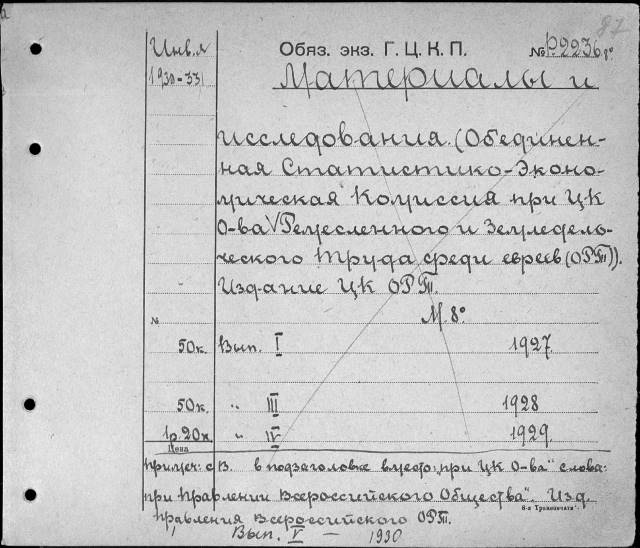 87
Инв. л Обяз. экз. Г. Ц. К. П. № Р2236 8°
1930-33 Материалы и
исследования. (Обединен-
ная Статистико-Эконо-
мическая Комиссия при ЦК
О-ва V Ремесленного и Земледель-
ческого Труда среди евреев (ОРТ)).
Издание ЦК ОРТ.
М. 8°
№
50к. Вып. I 1927.
50к. „ III 1928
1р.20к „ IV 1929.
Цена
Примеч: с В. в подзаголовке вместо: „при ЦК О-ва" слова:
при Правлении Всероссийского Общества". Изд.
6-я Транспечать.
Правления Всероссийского ОРТ.
Вып. V — 1930